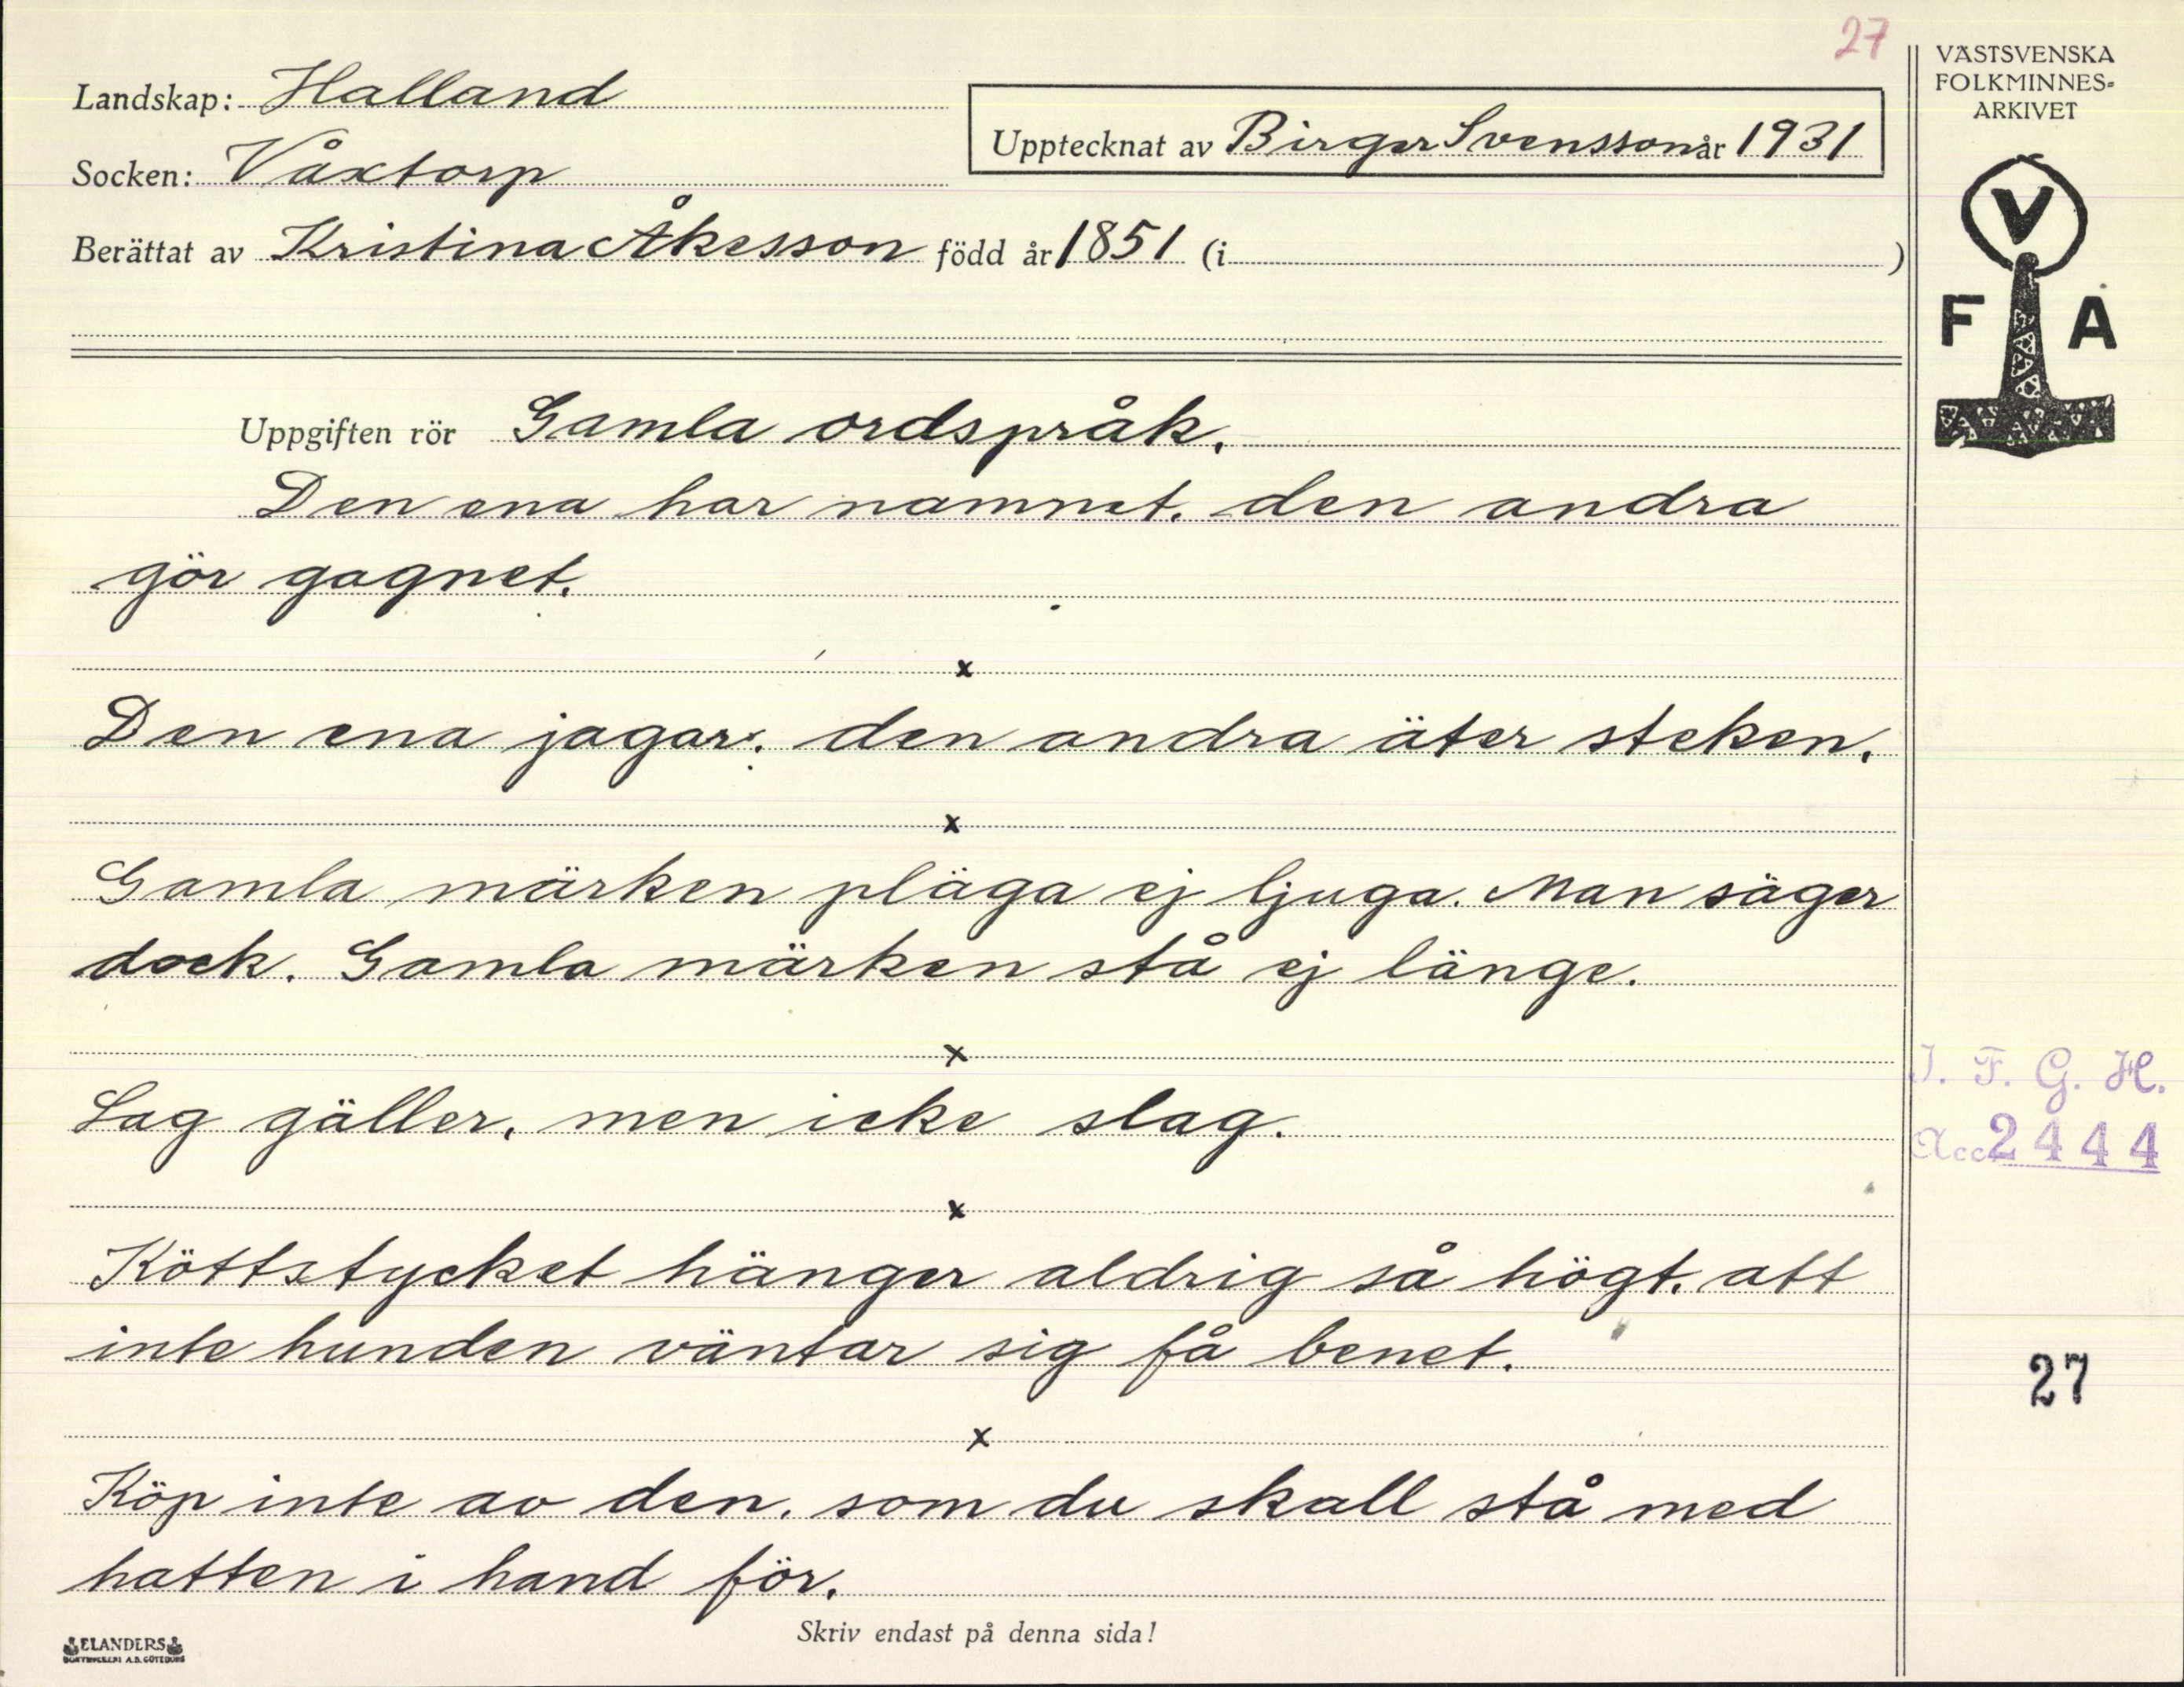 27
Landskap: Halland
Upptecknat av Birger Svensson år 1931
Socken: Våxtorp
Berättat av Kristina Åkesson född år 1851 (i )
VÄSTSVENSKA
FOLKMINNES-
ARKIVET
V
F A
Uppgiften rör Gamla ordspråk.
Den ena har namnet, den andra
gör gagnet.
x
Den ena jagar; den andra äter steken.
x
Gamla märken pläga ej ljuga. Man säger
dock. Gamla märken stå ej länge.
x
Lag gäller, men icke slag.
x
Köttstycket hänger aldrig så högt, att
inte hunden väntar sig få benet.
x
Köp inte av den, som du skall stå med
hatten i hand för.
I. F. G. H.
Acc 2444
27
Skriv endast på denna sida!
ELANDERS
BOKTRYCKERI A.B. GÖTEBORG